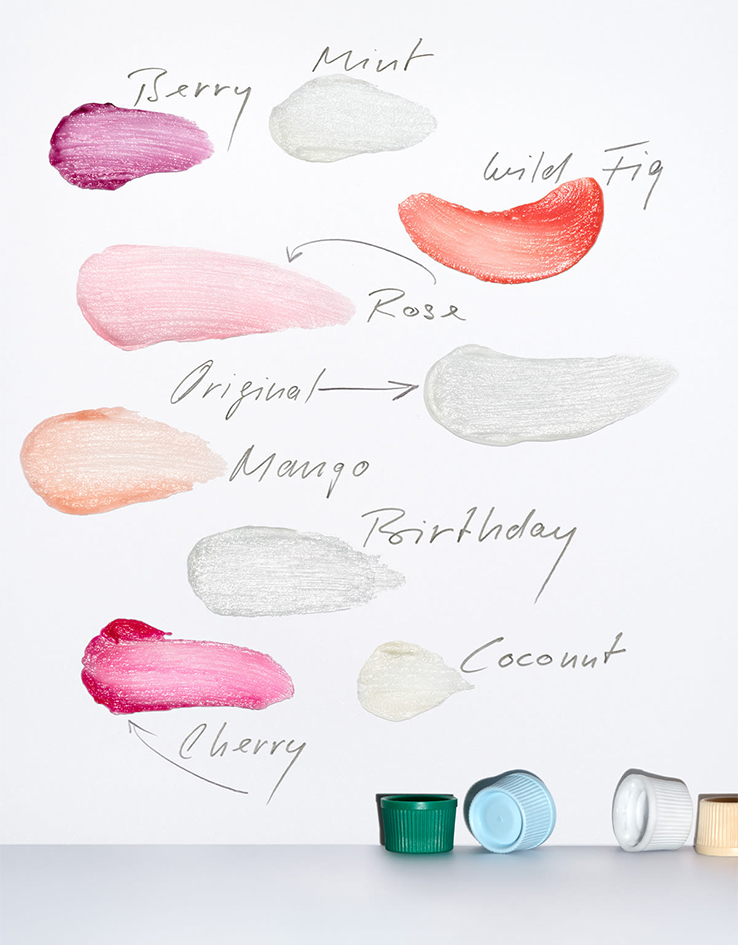 Mint
Berry
Wild Fig
Rose
Original
Mango
Birthday
Coconut
Cherry